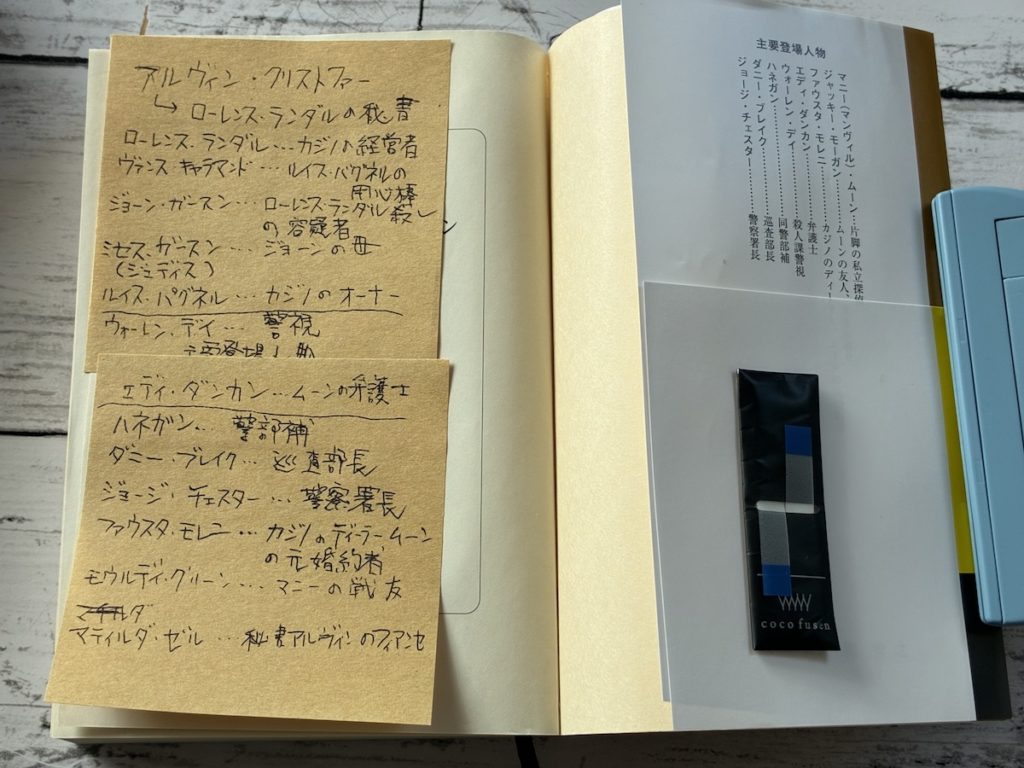 アルヴィン・クリストファー
↳ ローレンス・ランダルの秘書
ローレンス・ランダル…カジノの経営者
ヴァンス・キャラマンド…ルイス・パグネルの
用心棒
ジョーン・ガースン…ローレンス・ランダル殺し
の容疑者
ミセス・ガースン…ジョーンの母
(ジュディス)
ルイス・パグネル…カジノのオーナー
ウォーレン・デイ…警視
エディ・ダンカン…ムーンの弁護士
ハネガン…警部補
ダニー・ブレイク…巡査部長
ジョージ・チェスター…警察署長
ファウスタ・モレニ…カジノのディーラームーン
の元婚約者
モウルディ・グリーン…マニーの戦友
マティルダ・ゼル…秘書アルヴィンのフィアンセ
主要登場人物
マニー(マンヴィル)・ムーン…片脚の私立探偵
ジャッキー・モーガン…ムーンの友人、
ファウスタ・モレニ…カジノのディー
エディ・ダンカン…弁護士
ウォーレン・デイ…殺人課警視
ハネガン…同警部補
ダニー・ブレイク…巡査部長
ジョージ・チェスター…警察署長
coco fusen